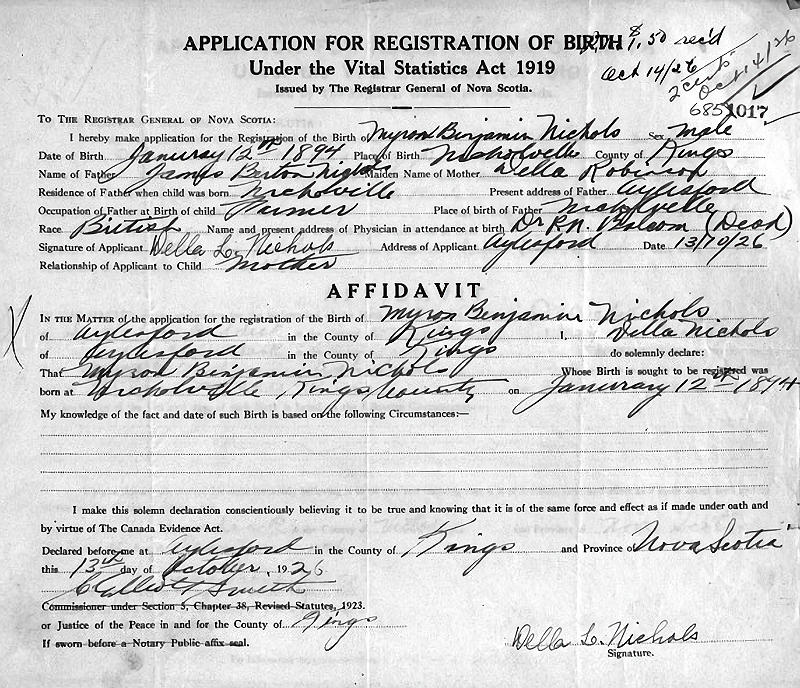 APPLICATION FOR REGISTRATION OF BIRTH $1.50 rec'd
Under the Vital Statistics Act 1919 Oct 14/26
Issued by The Registrar General of Nova Scotia. 2 cents Oct 14/26
685 1017
TO THE REGISTRAR GENERAL OF NOVA SCOTIA:
I hereby make application for the Registration of the Birth of Myron Benjamin Nichols Sex Male
Date of Birth Januray 12th 1894 Place of Birth Nicholville County of Kings
Name of Father James Burton Maiden Name of Mother Della Robinson
Residence of Father when child was born Nicholville Present address of Father Aylesford
Occupation of Father at Birth of child Farmer Place of birth of Father Nicholville
Race British Name and present address of Physician in attendance at birth Dr P.N. Balcom (Dead)
Signature of Applicant Della L. Nichols Address of Applicant Aylesford Date 13/10/26
Relationship of Applicant to Child Mother
AFFIDAVIT
IN THE MATTER of the application for the registration of the Birth of Myron Benjamin Nichols
of Aylesford in the County of Kings I, Della Nichols
of Aylesford in the County of Kings do solemnly declare:
That Myron Benjamin Nichols Whose Birth is sought to be registered was
born at Nicholville Kings County on Januray 12th 1894
My knowledge of the fact and date of such Birth is based on the following Circumstances:—
I make this solemn declaration conscientiously believing it to be true and knowing that it is of the same force and effect as if made under oath and
by virtue of The Canada Evidence Act.
Declared before me at Aylesford in the County of Kings and Province of Nova Scotia
this 13th day of October, 1926
C Elliott Smith
Commissioner under Section 5, Chapter 38, Revised Statutes, 1923.
or Justice of the Peace in and for the County of Kings
If sworn before a Notary Public affix seal.
Della L. Nichols
Signature.